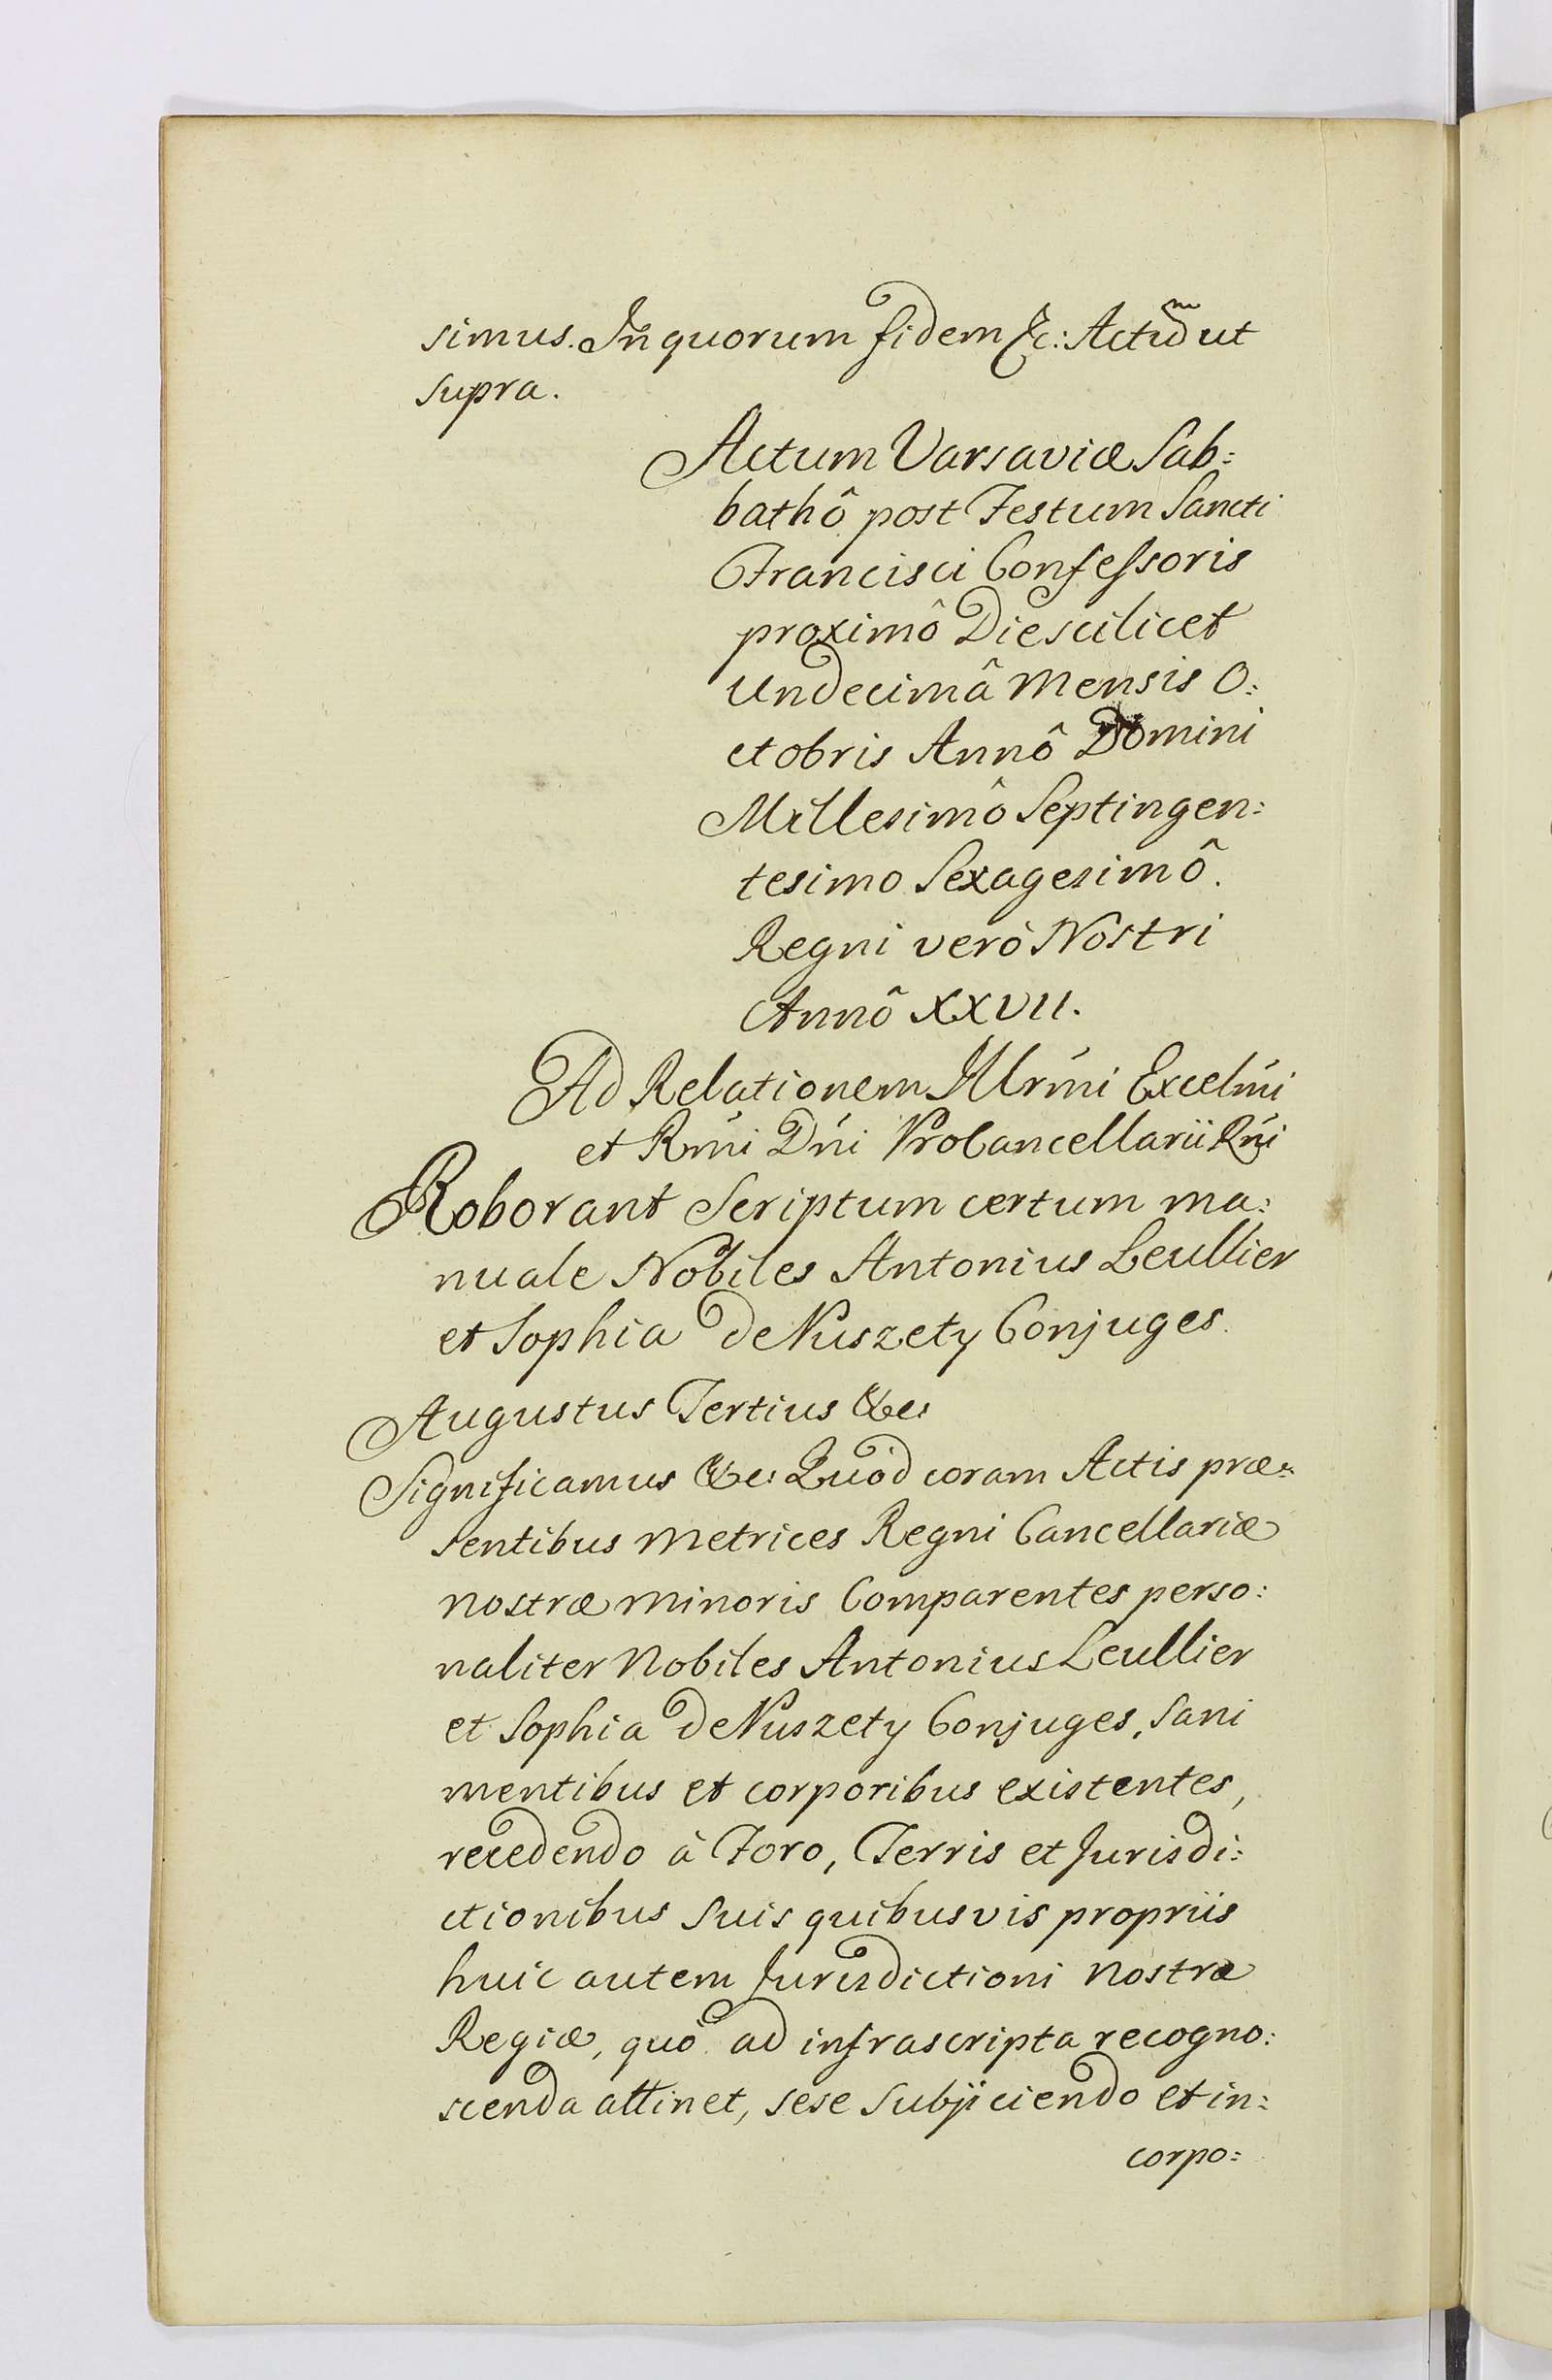 simus. In quorum fidem &c: Actũ ut
supra.
Actum Varsaviæ Sab:
bathô post Festum Sancti
Francisci Confeſsoris
proximô Die scilicet
Undecimâ Mensis O:
ctobris Annô Domini
Millesimô Septingen:
tesimo Sexagesimô.
Regni verò Nostri
Annô XXVII.
Ad Relationem Illrmi Excelmi
et Rmi Dni ProCancellarii Rni
Roborant Scriptum certum ma:
nuale Nobiles Antonius Leullier
et Sophia de Nuszety Conjuges.
Augustus Tertius &c:
Significamus &c: Quòd coram Actis præ:
sentibus Metrices Regni Cancellariæ
nostræ minoris Comparentes perso:
naliter Nobiles Antonius Leullier
et Sophia de Nuszety Conjuges, sani
mentibus et corporibus existentes,
recedendo à Foro, Terris et Jurisdi:
ctionibus suis quibusvis propriis
huic autem Jurisdictioni nostræ
Regiæ, quò ad infrascripta recogno:
scenda attinet, sese subjiciendo et in:
corpo: